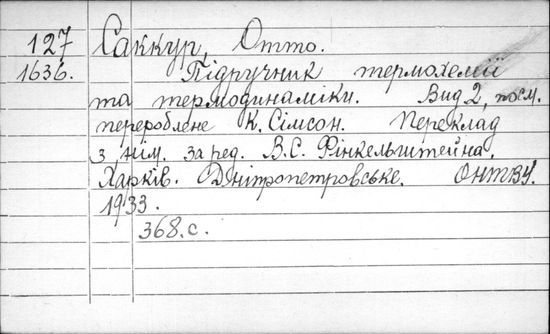 127 Саккур, Отто.
1636. Підручник термохемії
та термодинаміки. Вид 2, посм.
перероблене К. Сімсон. Переклад
з нім. за ред. В.С. Фінкельштейна.
Харків. Дніпропетровське. ОНТВУ.
1933.
368. с.